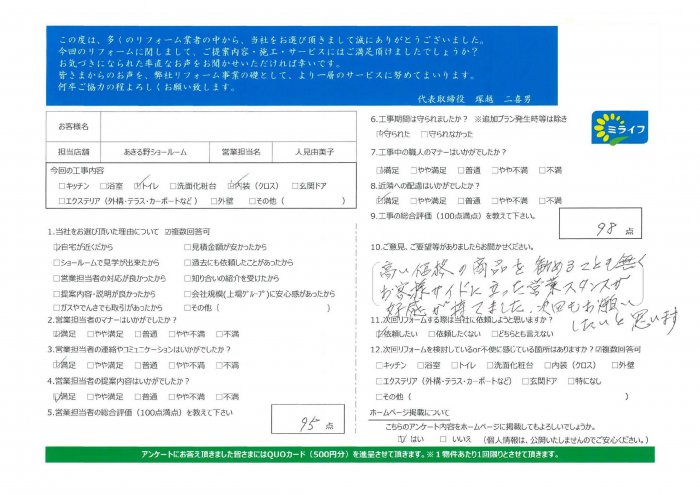 この度は、多くのリフォーム業者の中から、当社をお選び頂きまして誠にありがとうございました。
今回のリフォームに関しまして、ご提案内容・施工・サービスにはご満足頂けましたでしょうか?
お気づきになられた率直なお声をお聞かせいただければ幸いです。
皆さまからのお声を、弊社リフォーム事業の礎として、より一層のサービスに努めてまいります。
何卒ご協力の程よろしくお願い致します。
代表取締役 塚越 二喜男
ミライフ
お客様名
担当店舗 あきる野ショールーム 営業担当名 人見由美子
今回の工事内容
□キッチン □浴室 ☑トイレ □洗面化粧台 ☑内装(クロス) □玄関ドア
□エクステリア(外構・テラス・カーポートなど) □外壁 □その他( )
1.当社をお選び頂いた理由について ☑複数回答可
☑自宅が近くだから □見積金額が安かったから
□ショールームで見学が出来たから □過去にも依頼したことがあったから
□営業担当者の対応が良かったから □知り合いの紹介を受けたから
□提案内容・説明が良かったから □会社規模(上場グループ)に安心感があったから
□ガスやでんきでも取引があったから □その他( )
2.営業担当者のマナーはいかがでしたか?
☑満足 □やや満足 □普通 □やや不満 □不満
3.営業担当者の連絡やコミュニケーションはいかがでしたか?
☑満足 □やや満足 □普通 □やや不満 □不満
4.営業担当者の提案内容はいかがでしたか?
☑満足 □やや満足 □普通 □やや不満 □不満
5.営業担当者の総合評価(100点満点)を教えて下さい
95 点
6.工事期間は守られましたか? ※追加プラン発生時等は除き
☑守られた □守られなかった
7.工事中の職人のマナーはいかがでしたか?
☑満足 □やや満足 □普通 □やや不満 □不満
8.近隣への配慮はいかがでしたか?
☑満足 □やや満足 □普通 □やや不満 □不満
9.工事の総合評価(100点満点)を教えて下さい。
98 点
10.ご意見、ご要望等がありましたらお聞かせください。
高い価格の商品を勧めることも無く
お客様サイドに立った営業スタンスが
好感が持てました。次回もお願い
したいと思います
11.次回リフォームする際は当社に依頼しようと思いますか?
☑依頼したい □依頼したくない □どちらとも言えない
12.次回リフォームを検討しているor不便に感じている箇所はありますか? ☑複数回答可
□キッチン □浴室 □トイレ □洗面化粧台 □内装(クロス) □外壁
□エクステリア(外構・テラス・カーポートなど) □玄関ドア □特になし
□その他( )
ホームページ掲載について
こちらのアンケート内容をホームページに掲載してもよろしいでしょうか。
☑はい □いいえ (個人情報は、公開いたしませんのでご安心ください。)
アンケートにお答え頂きました皆さまにはQUOカード(500円分)を進呈させて頂きます。※1物件あたり1回限りとさせて頂きます。